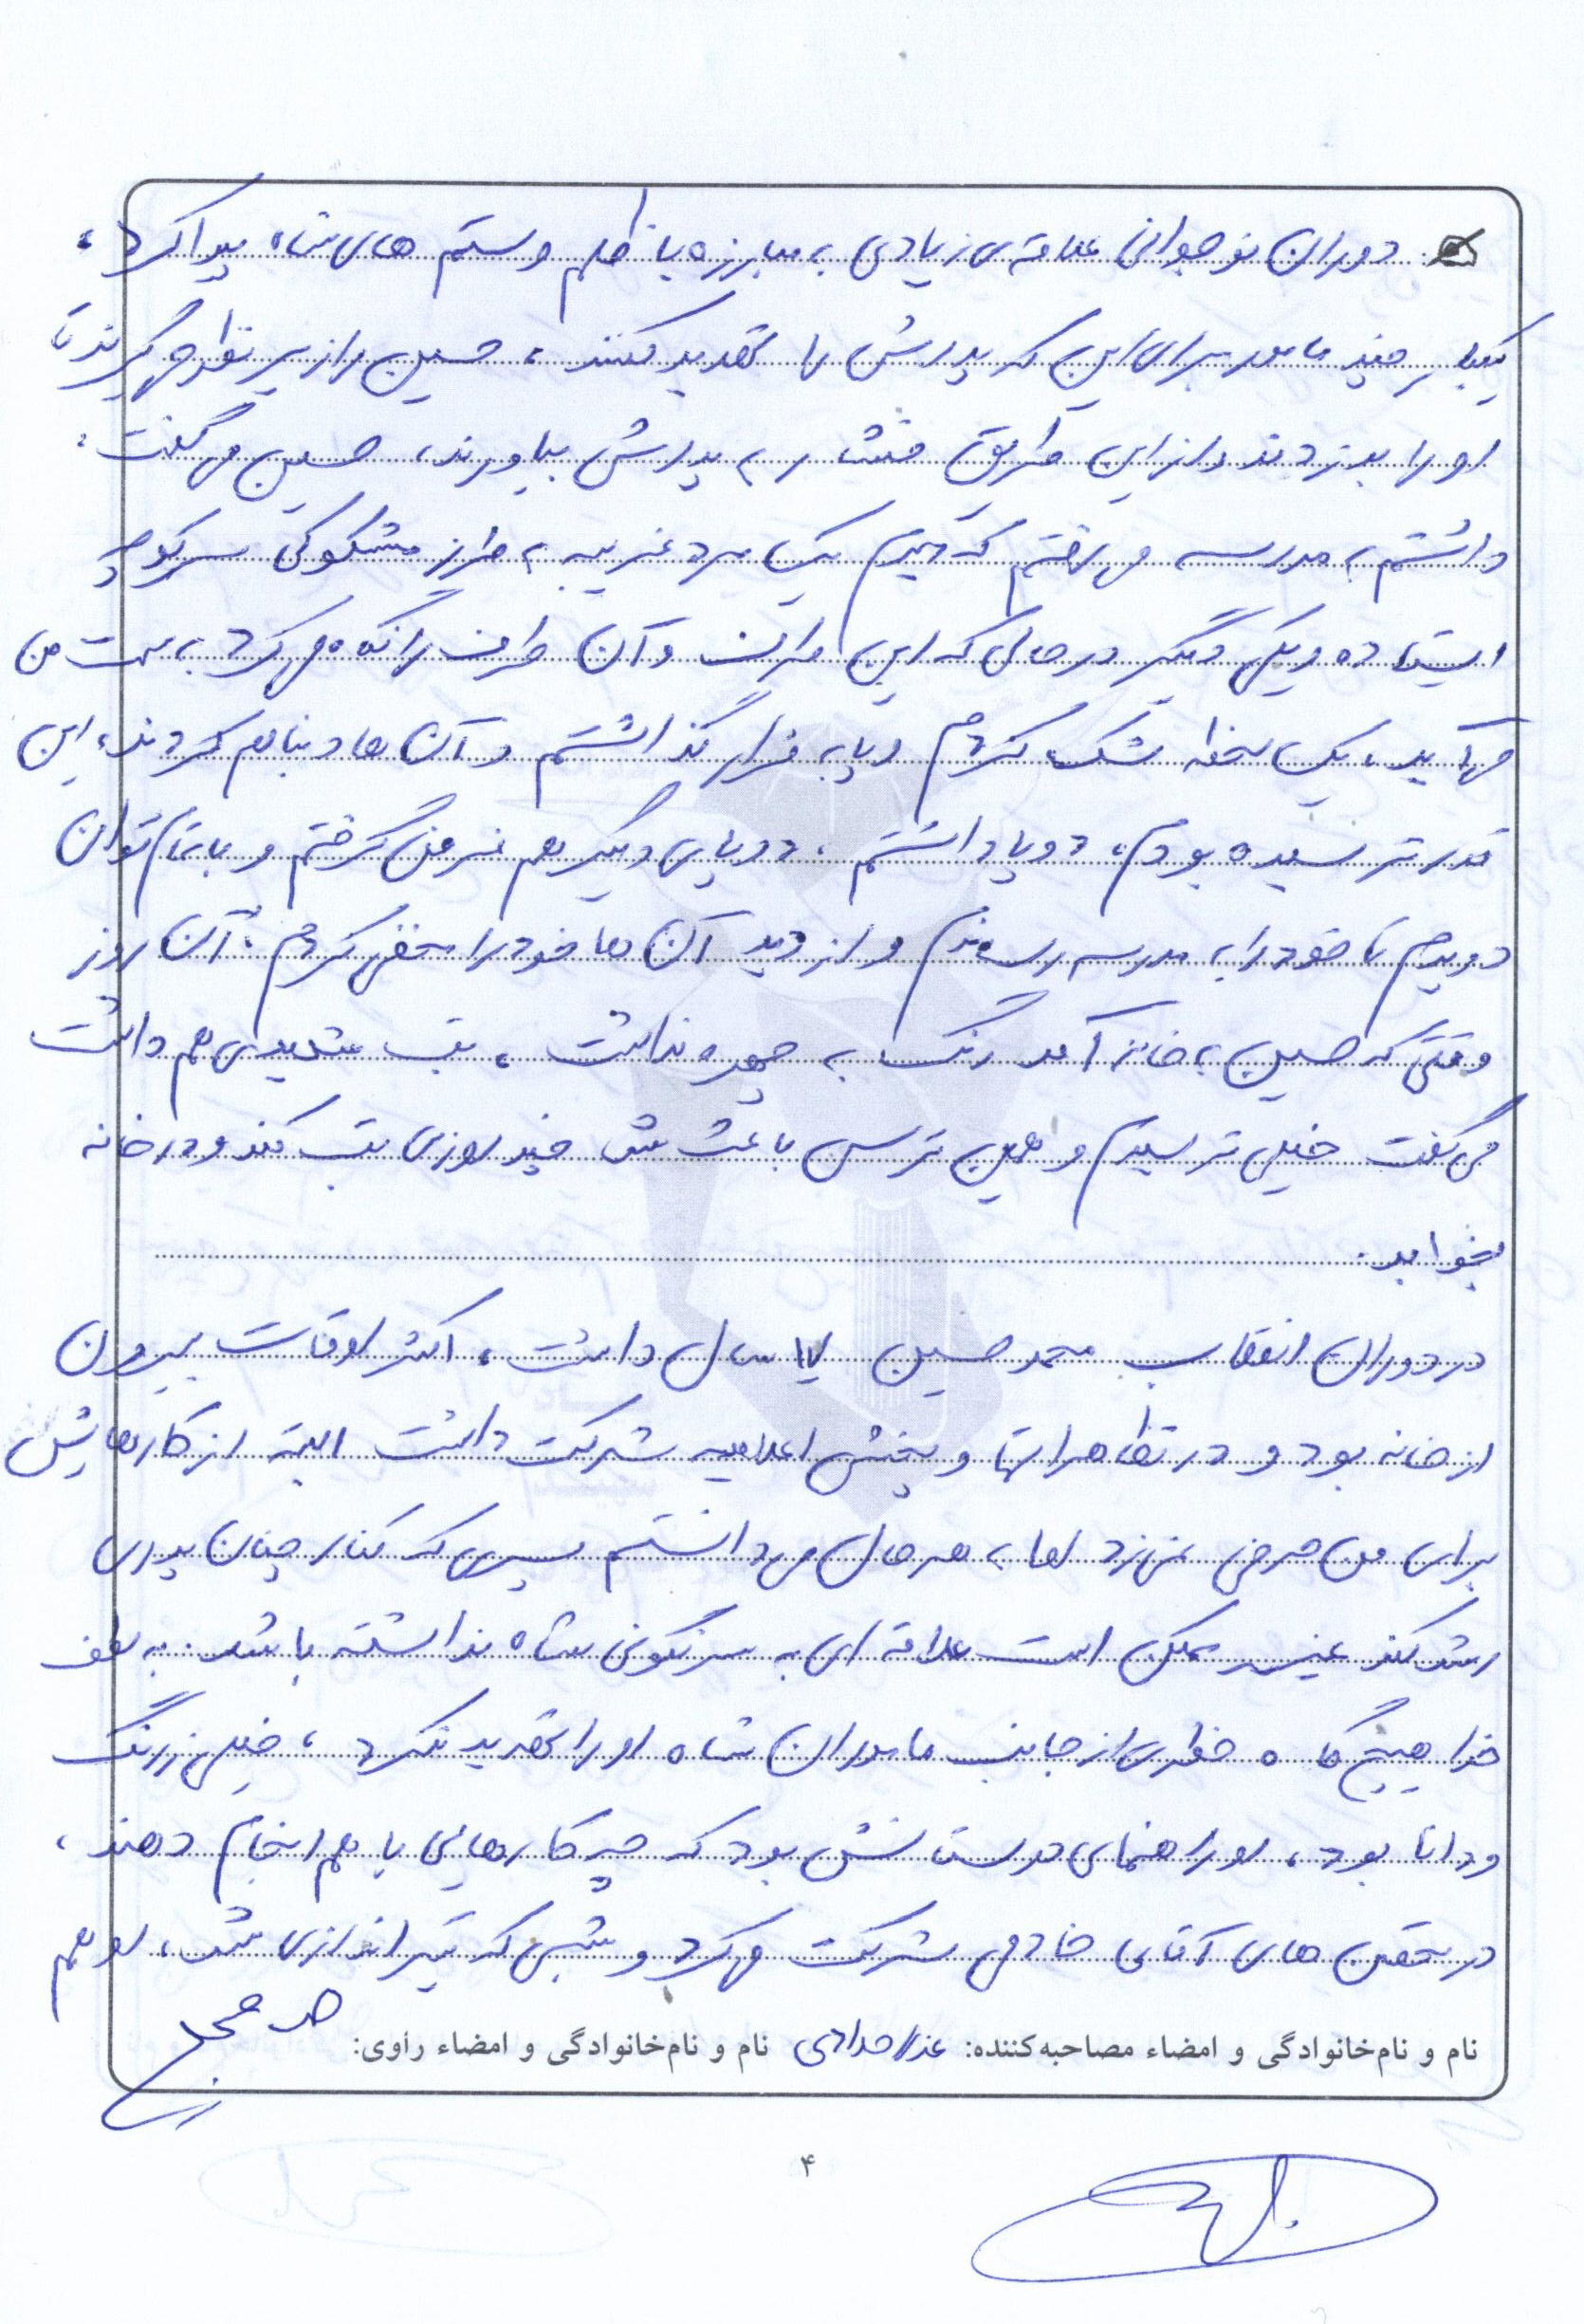 دوران نوجوانی علاقه‌ی زیادی به مبارزه با ظلم و ستم های شاه پیدا کرد،
یکبار چند مامور برای این که پدرش را تهدید کنند، حسین را زیر نظر می گیرند تا
او را بدزدند و از این طریق فشار به پدرش بیاورند، حسین می گفت:
داشتم به مدرسه می رفتم که دیدم یک مرد غریبه به طرز مشکوکی سر کوچه
ایستاده و یکی دیگر در حالی که این طرف و آن طرف را نگاه می کرد به سمت من
می آید، یک لحظه شک کردم و پا به فرار گذاشتم و آن ها دنبالم کردند، این
قدر ترسیده بودم، دو پا داشتم، دو پای دیگر هم قرض گرفتم و با تمام توان
دویدم تا خود را به مدرسه رساندم و از دید آن ها خود را مخفی کردم. آن روز
وقتی که حسین به خانه آمد رنگ به چهره نداشت، تب شدیدی هم داشت
می گفت خیلی ترسیدم و همین ترس باعث شد چند روزی تب کند و در خانه
بخوابد.
در دوران انقلاب محمد حسین ۱۷ سال داشت، اکثر اوقات بیرون
از خانه بود و در تظاهراتها و پخش اعلامیه شرکت داشت البته از کارهایش
برای من حرفی نمی زد اما به هر حال می دانستم پسری که کنار چنان پدری
رشد کند غیر ممکن است علاقه ای به سرنگونی شاه نداشته باشد. به لطف
خدا هیچ گاه خطری از جانب ماموران شاه او را تهدید نکرد، خیلی زرنگ
و دانا بود، او راهنمای دوستانش بود که چه کارهایی با هم انجام دهند،
در تحصن های آقای خادمی شرکت می کرد و شبی که تیراندازی شد، او هم
نام و نام‌خانوادگی و امضاء مصاحبه‌کننده: عذرا حدادی نام و نام‌خانوادگی و امضاء راوی:
۴